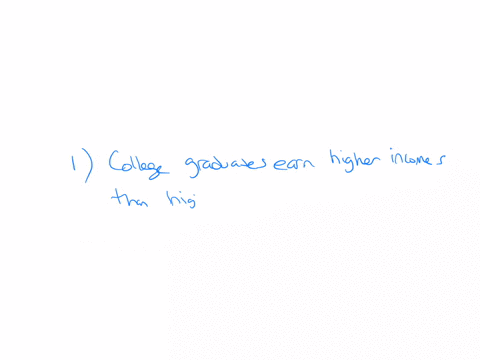 1) College graduates earn higher incomes
than hig